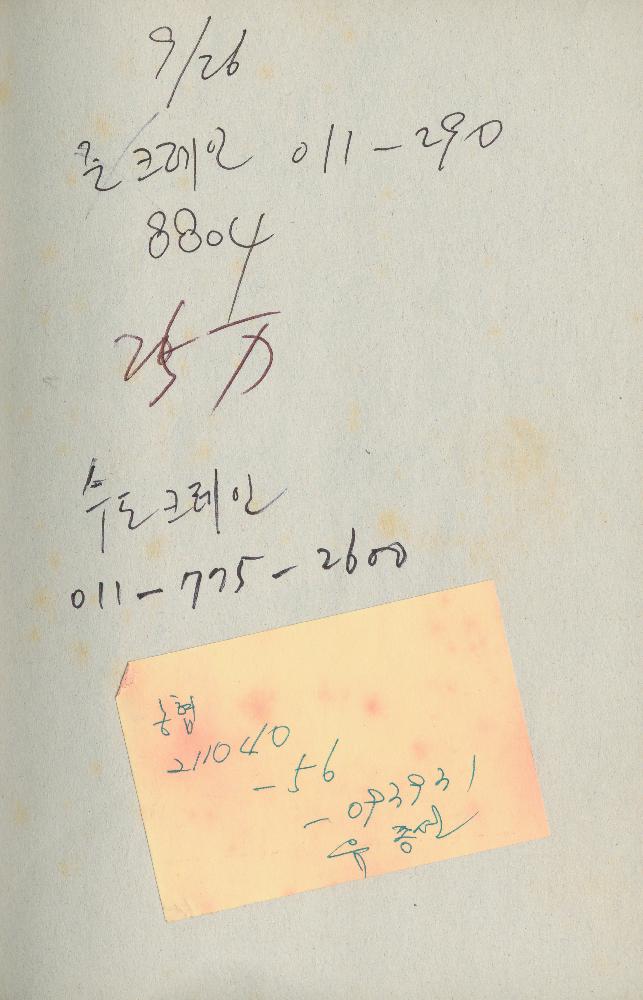 9/26
크레인 011-290
8804
25
수도크레인
011-775-2600
농협
211040
-56
-093931
우종선